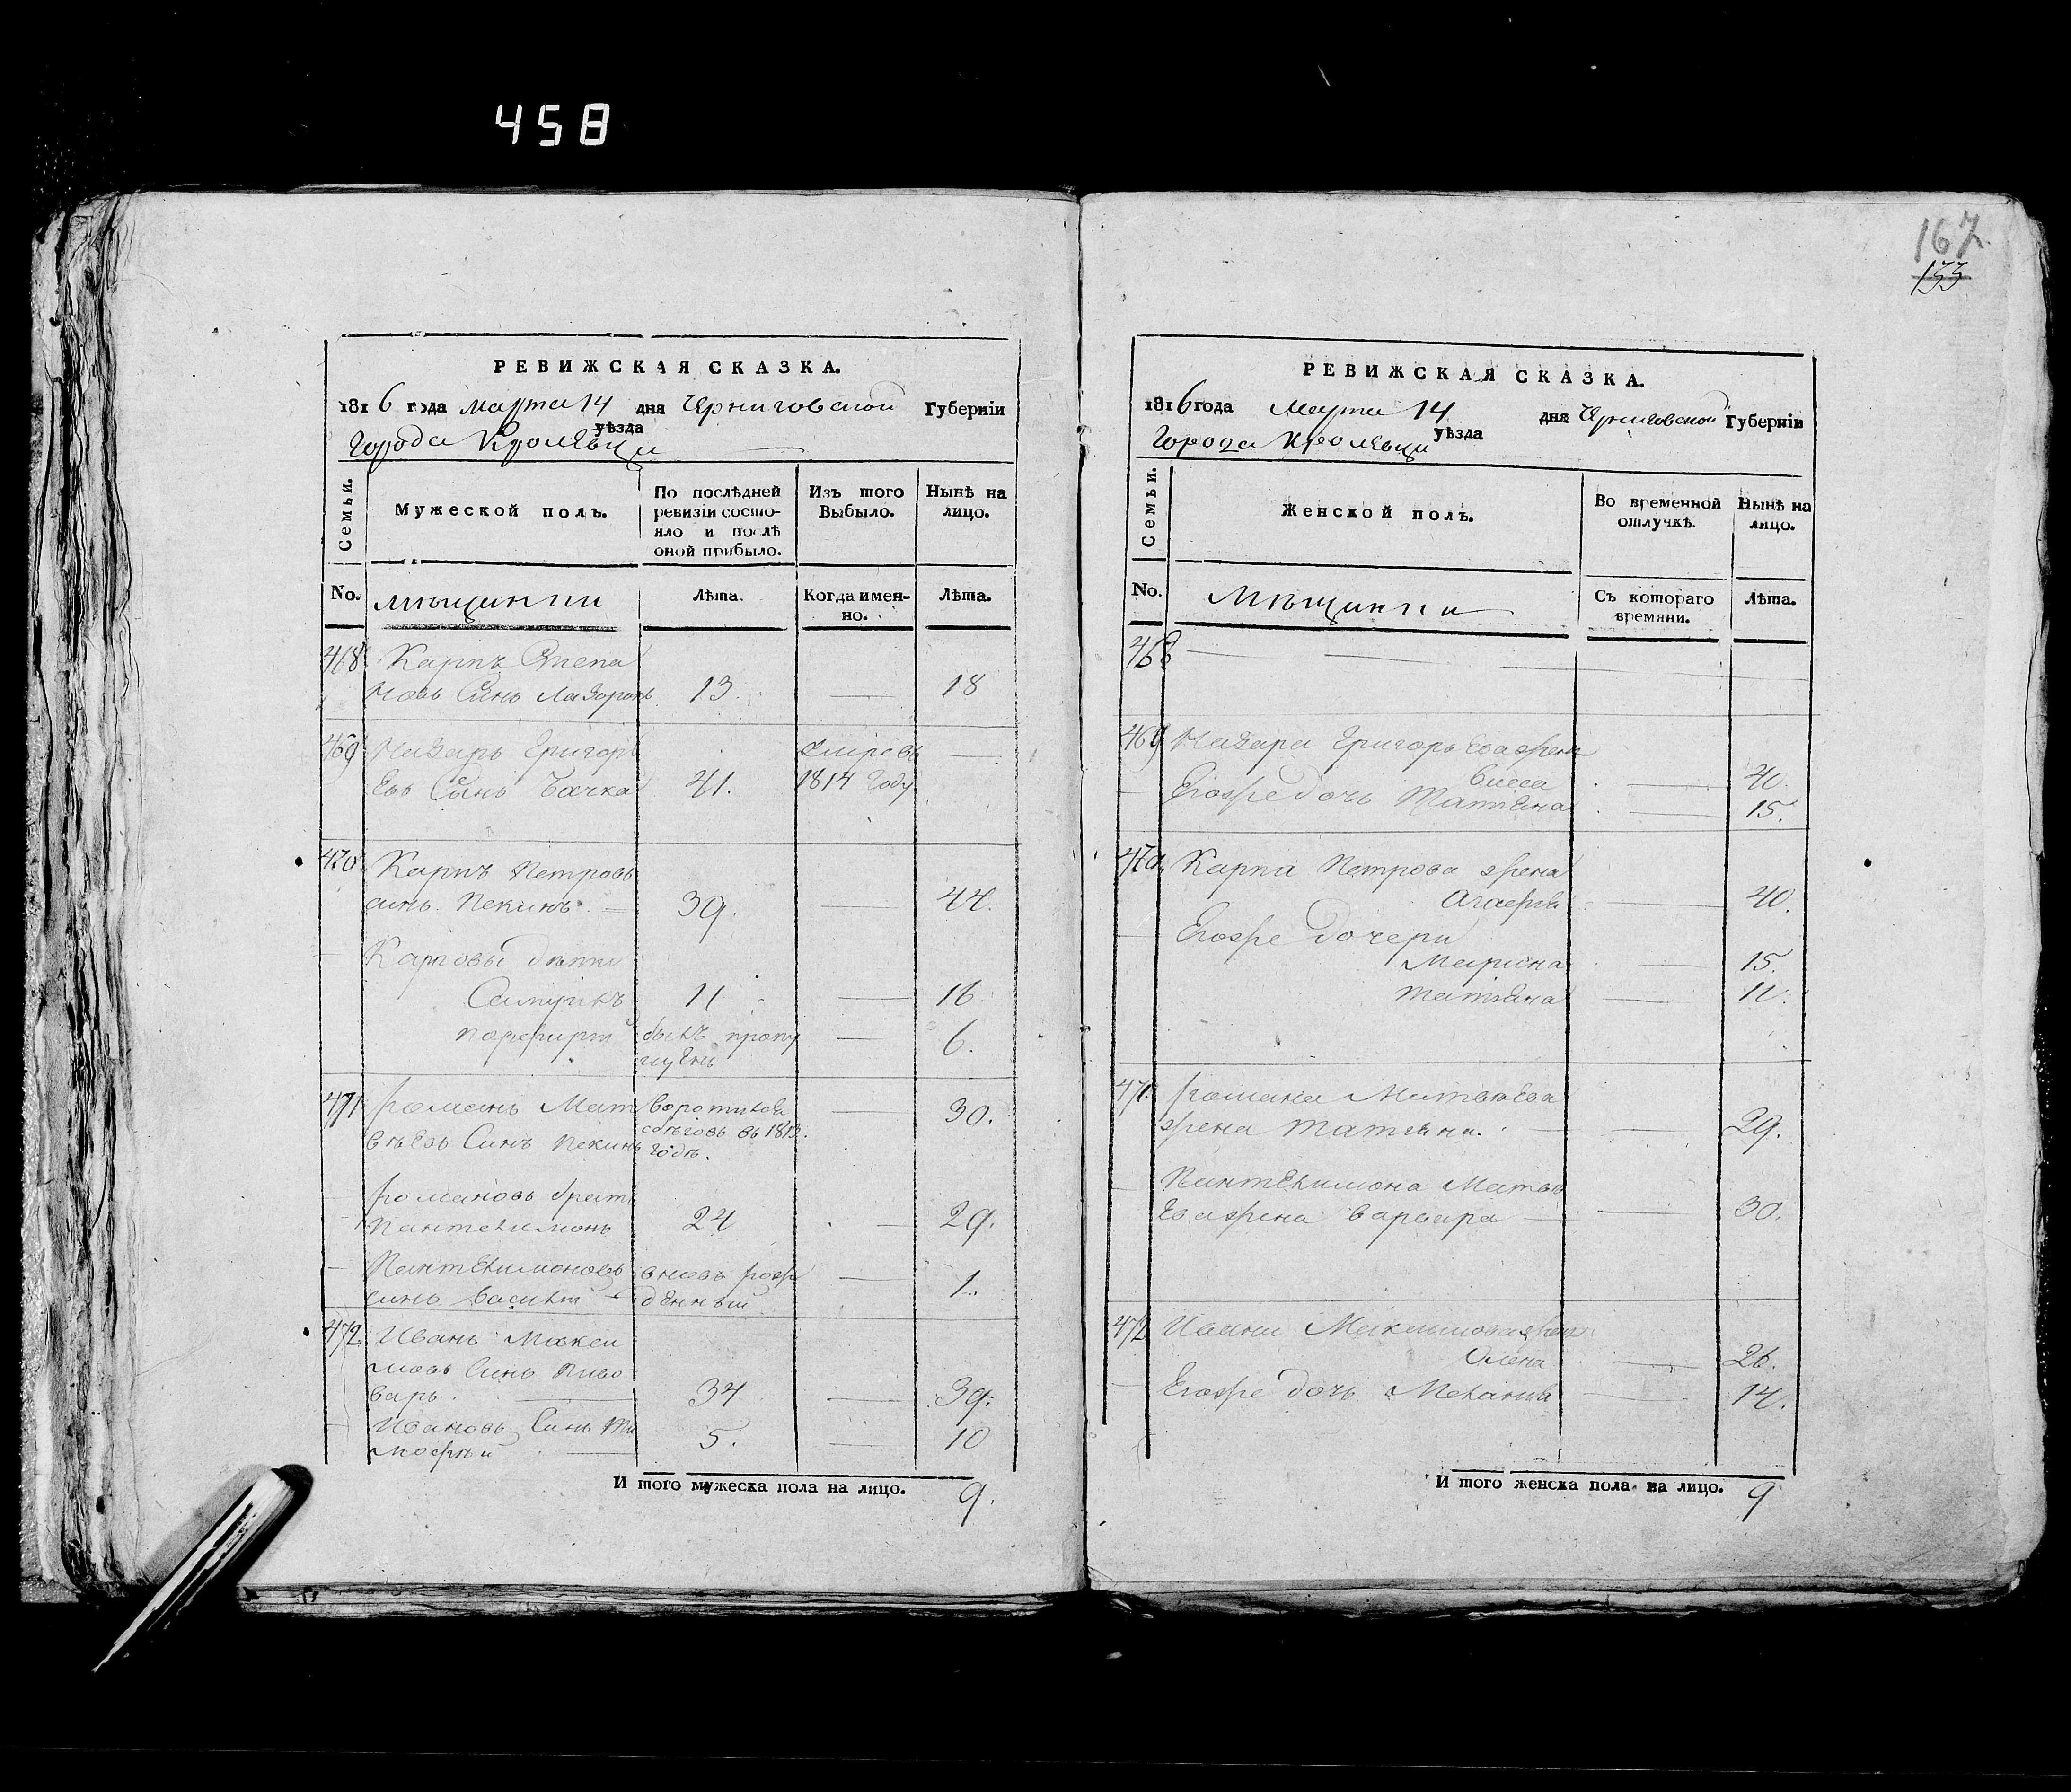 458
РЕВИЖСКАЯ СКАЗКА.
1816 года марта 14 дня Черниговской Губерніи
уѣзда
Города Кролевца
Семьи.
Мужеской полъ.
По послѣдней ревизіи состояло и послѣ оной прибыло.
Изъ того Выбыло.
Нынѣ на лицо.
No. мѣщинии Лѣта. Когда именно. Лѣта.
468 Карпъ Степа
новъ Синъ 13. — 18
469 Назаръ Григорь
умре въ —
евъ Синъ Бачка 41. 1814 Году
470 Карпъ Петровъ
синъ Пекинъ. 39. — 44.
Карповы дѣти
11 — 16.
Порфирій былъ пропу — 6.
щенъ
471 Романъ Мат — 30.
вѣевъ Синъ Пекинъ
въ 1813.
годѣ.
Романовъ братъ
Пантелимонъ 24 — 29.
Пантелимоновъ вновь рож — 1.
синъ Василій денный
472 Иванъ Макси
мовъ Синъ Пиво
варъ. 34 — 39.
Ивановъ Синъ Ти 5. — 10
мофѣй
И того мужеска пола на лицо. 9.
167.
133
РЕВИЖСКАЯ СКАЗКА.
1816 года Марта 14 дня Черниговской Губерніи
уѣзда
Города Кролевца
Семьи.
Женской полъ.
Во временной отлучкѣ.
Нынѣ на лицо.
No. Мѣщинии Съ котораго времяни. Лѣта.
468 — — —
469 Назара Григорьева жена
— 40.
Егожъ дочь Татіана — 15.
470. Карпа Петрова жена
Агафія — 40.
Егоже дочери
Марина — 15.
Татіана — 11.
471. Романа Матвѣева
жена Татіана. — 29.
Пантелимона Матвѣ
ева жена Варвара — 30.
472 Ивана Максимова жена
Олена — 26.
Егоже дочь Меланія — 14.
И того женска пола на лицо. 9